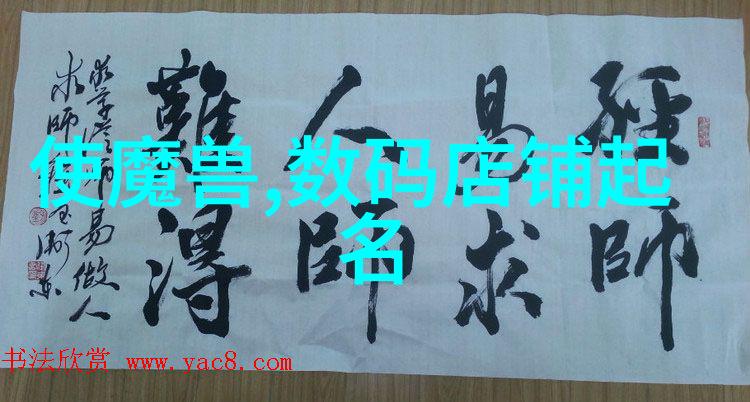 經師
易求
人師
難得
易做人
求師
使魔兽,数码店铺起
名
书法欣赏 www.yac8.com